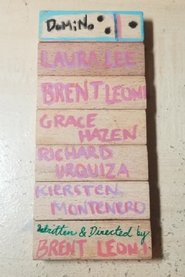 DOMiNO
LAURA LEE
BRENT LEONI
GRACE
HAZEN
RICHARD
URQUIZA
KIERSTEN
MONTENERO
Written & Directed by
BRENT LEONI